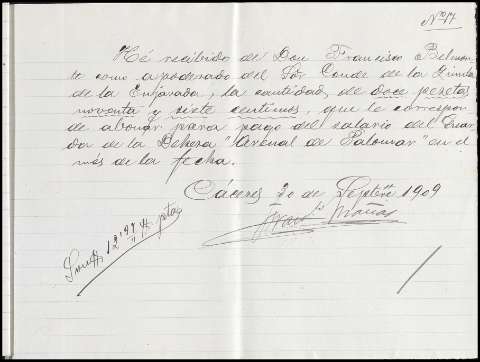 Nº 17
Hé recibido de Don Francisco Belmon
te como apoderado del Sor Conde de la Quinta
de la Enjarada, la cantidad, de doce pesetas
noventa y siete centimos, que le correspon
de abonar para pago del salario del Guar
da de la Dehesa "Arenal de Palomar" en el
més de la fecha.
Cáceres 30 de Septbre 1909
Muñoz
Son # 12'97 # ptas